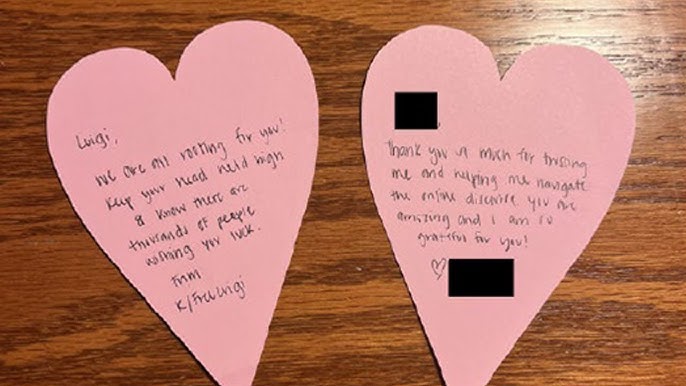 Luigi,
We are all rooting for you!
Keep your head held high
& know there are
thousands of people
wishing you luck.
From
r/FreeLuigi
,
Thank you so much for trusting
me and helping me navigate
the online discourse you are
amazing and I am so
grateful for you!
♡